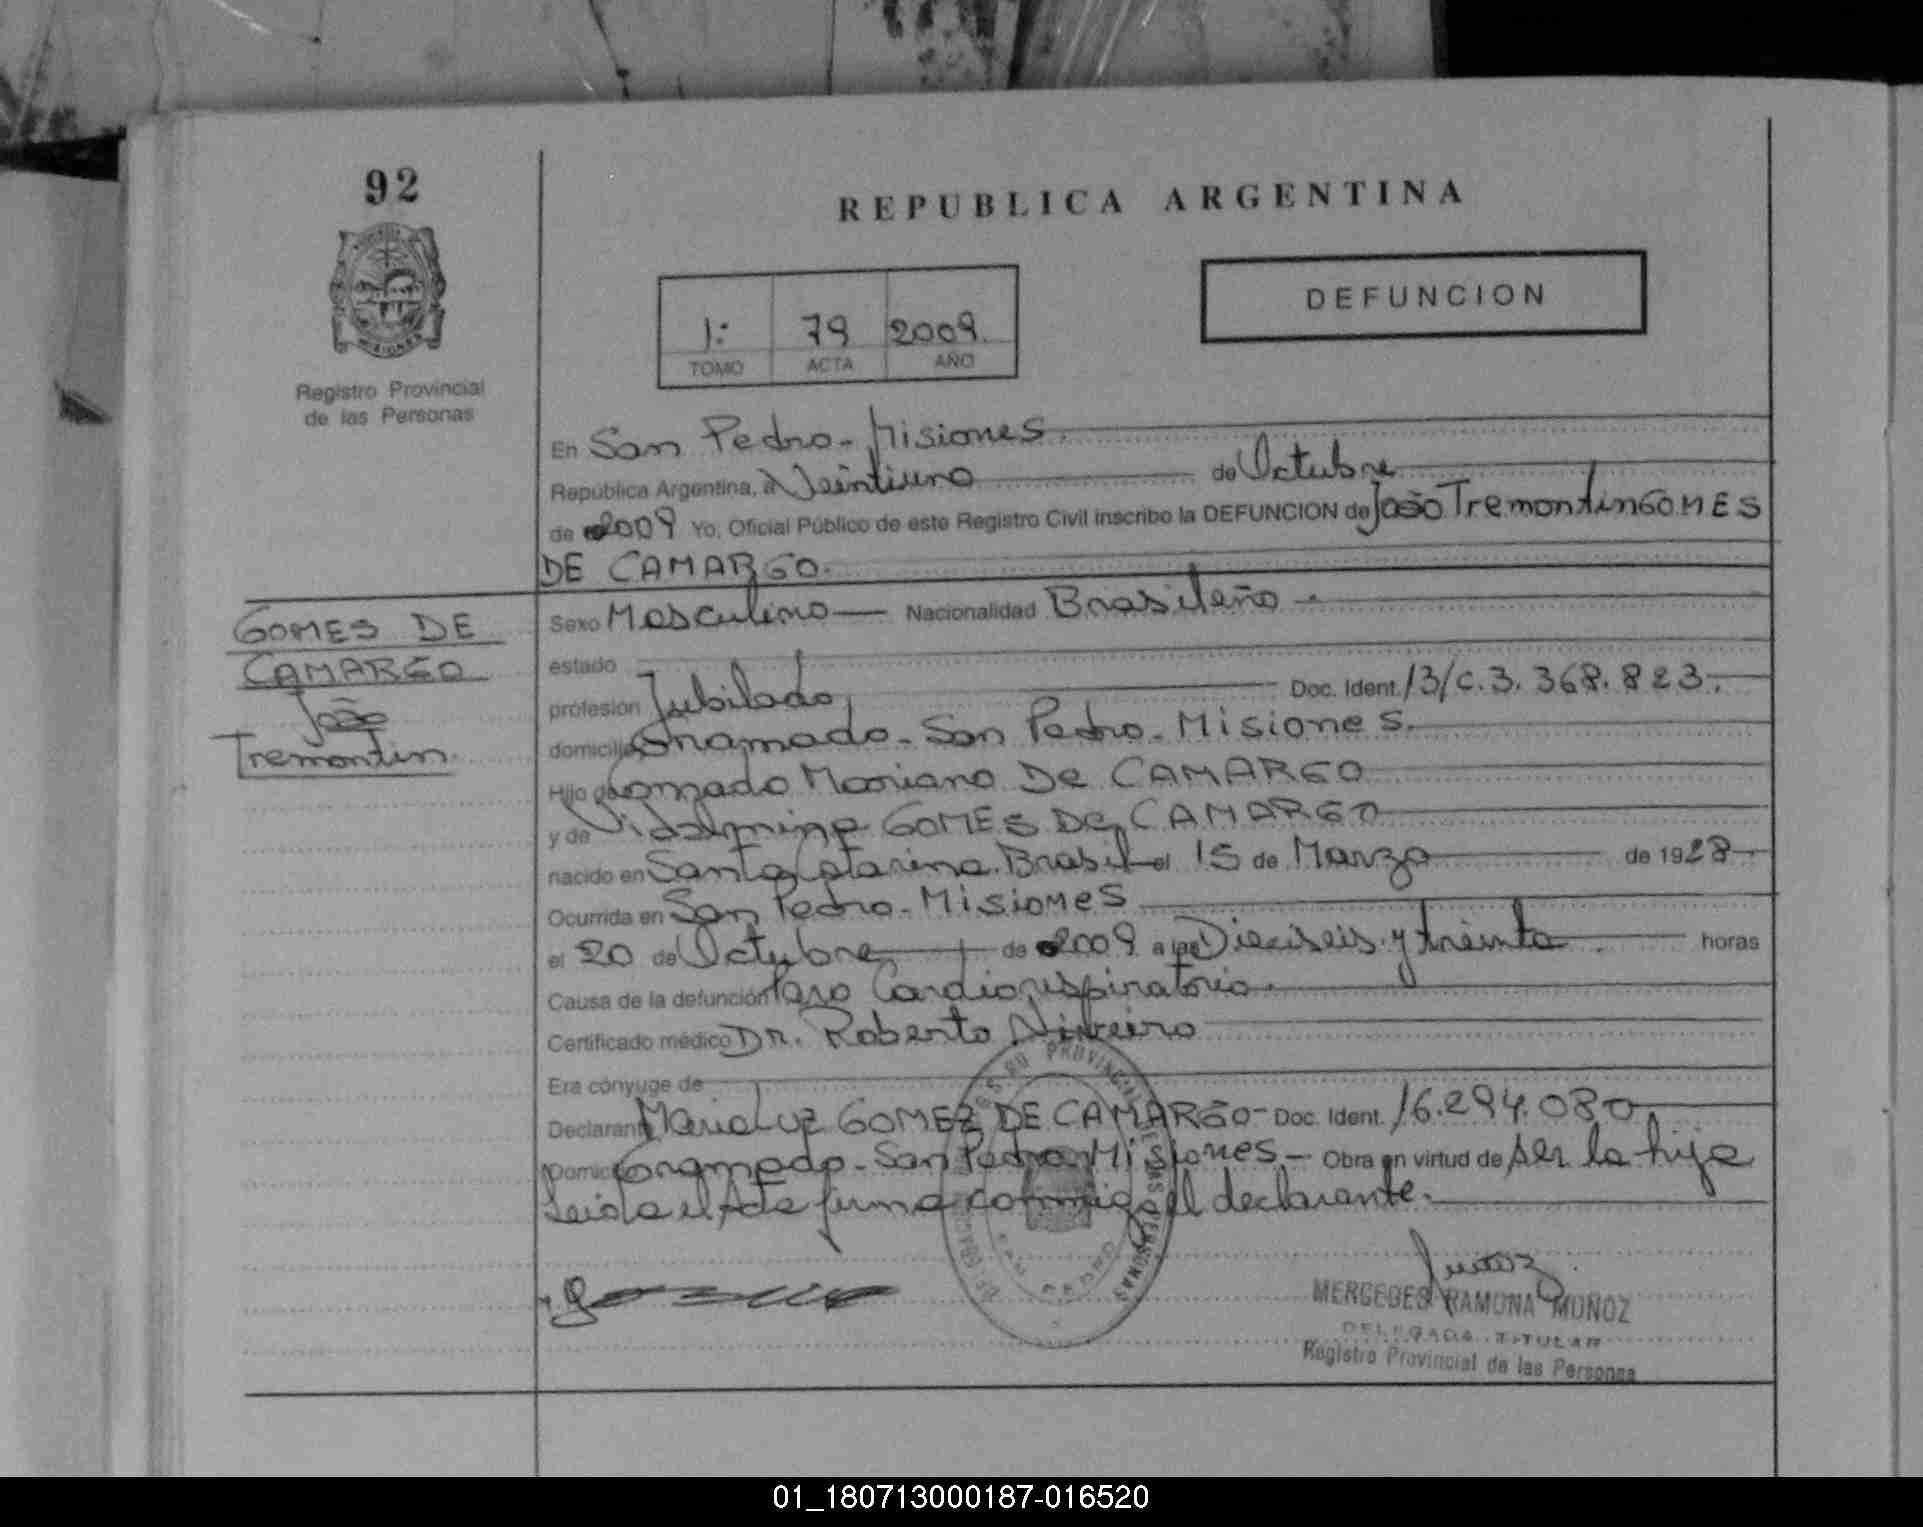 92
REPUBLICA ARGENTINA
DEFUNCION
1: 79 2009.
TOMO ACTA AÑO
MISIONES
Registro Provincial
de las Personas
En San Pedro - Misiones.
República Argentina, a Veintiuno de Octubre
de 2009 Yo, Oficial Público de este Registro Civil inscribo la DEFUNCION de João Tremontin GOMES
DE CAMARGO.
GOMES DE
CAMARGO
João
Tremontin
Sexo Masculino Nacionalidad Brasileño.
estado
profesión Jubilado, Doc. Ident. 13/C.3.368.823.
domicilio - San Pedro - Misiones.
Hijo de Mariano De CAMARGO
y de GOMES De CAMARGO
nacido en Santa Catarina Brasil el 15 de Marzo de 1928
Ocurrida en San Pedro - Misiones
el 20 de Octubre de 2009 a las Dieciseis y treinta. horas
Causa de la defunción Paro Cardiorespiratorio.
Certificado médico Dr. Roberto
Era cónyuge de
Declarante Maria Luz GOMEZ DE CAMARGO - Doc. Ident. 16.294.080
Domicilio - San Pedro Misiones - Obra en virtud de ser la hija
Leida el Acta firma conmigo el declarante.
MERCEDES RAMONA MUÑOZ
DELEGADA TITULAR
Registro Provincial de las Personas
01_180713000187-016520